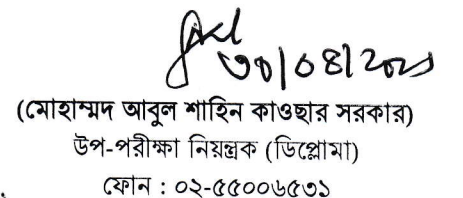 (মোহাম্মদ আবুল শাহিন কাওছার সরকার)
উপ-পরীক্ষা নিয়ন্ত্রক (ডিপ্লোমা)
ফোন : ০২-৫৫০০৬৫৩১